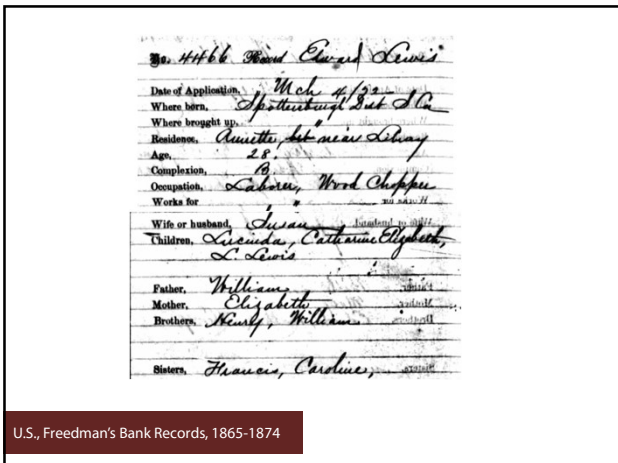 No. 4466 Record Edward Lewis
Date of Application, Mch 4/72
Where born, Spottenburgh Dist S. Ca
Where brought up, "
Residence, near
Age, 28.
Complexion, B.
Occupation, Laborer, Wood Chopper
Works for " "
Wife or husband, Susan
Children, Lucinda, Catharine Elizabeth,
L. Lewis
Father, William
Mother, Elizabeth
Brothers, Henry, William
Sisters, Francis, Caroline,
U.S., Freedman's Bank Records, 1865-1874